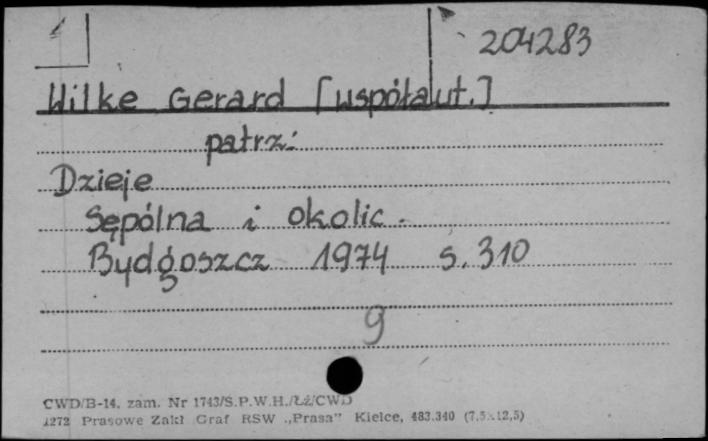 204283
Wilke Gerard [współaut.]
patrz:
Dzieje
Sępólna i okolic.
Bydgoszcz 1974 s. 310
g
CWD/B-14. zam. Nr 1743/S.P.W.H./Łź/CWD
1272 Prasowe Zakł Graf RSW „Prasa” Kielce, 483.340 (7,5x12,5)